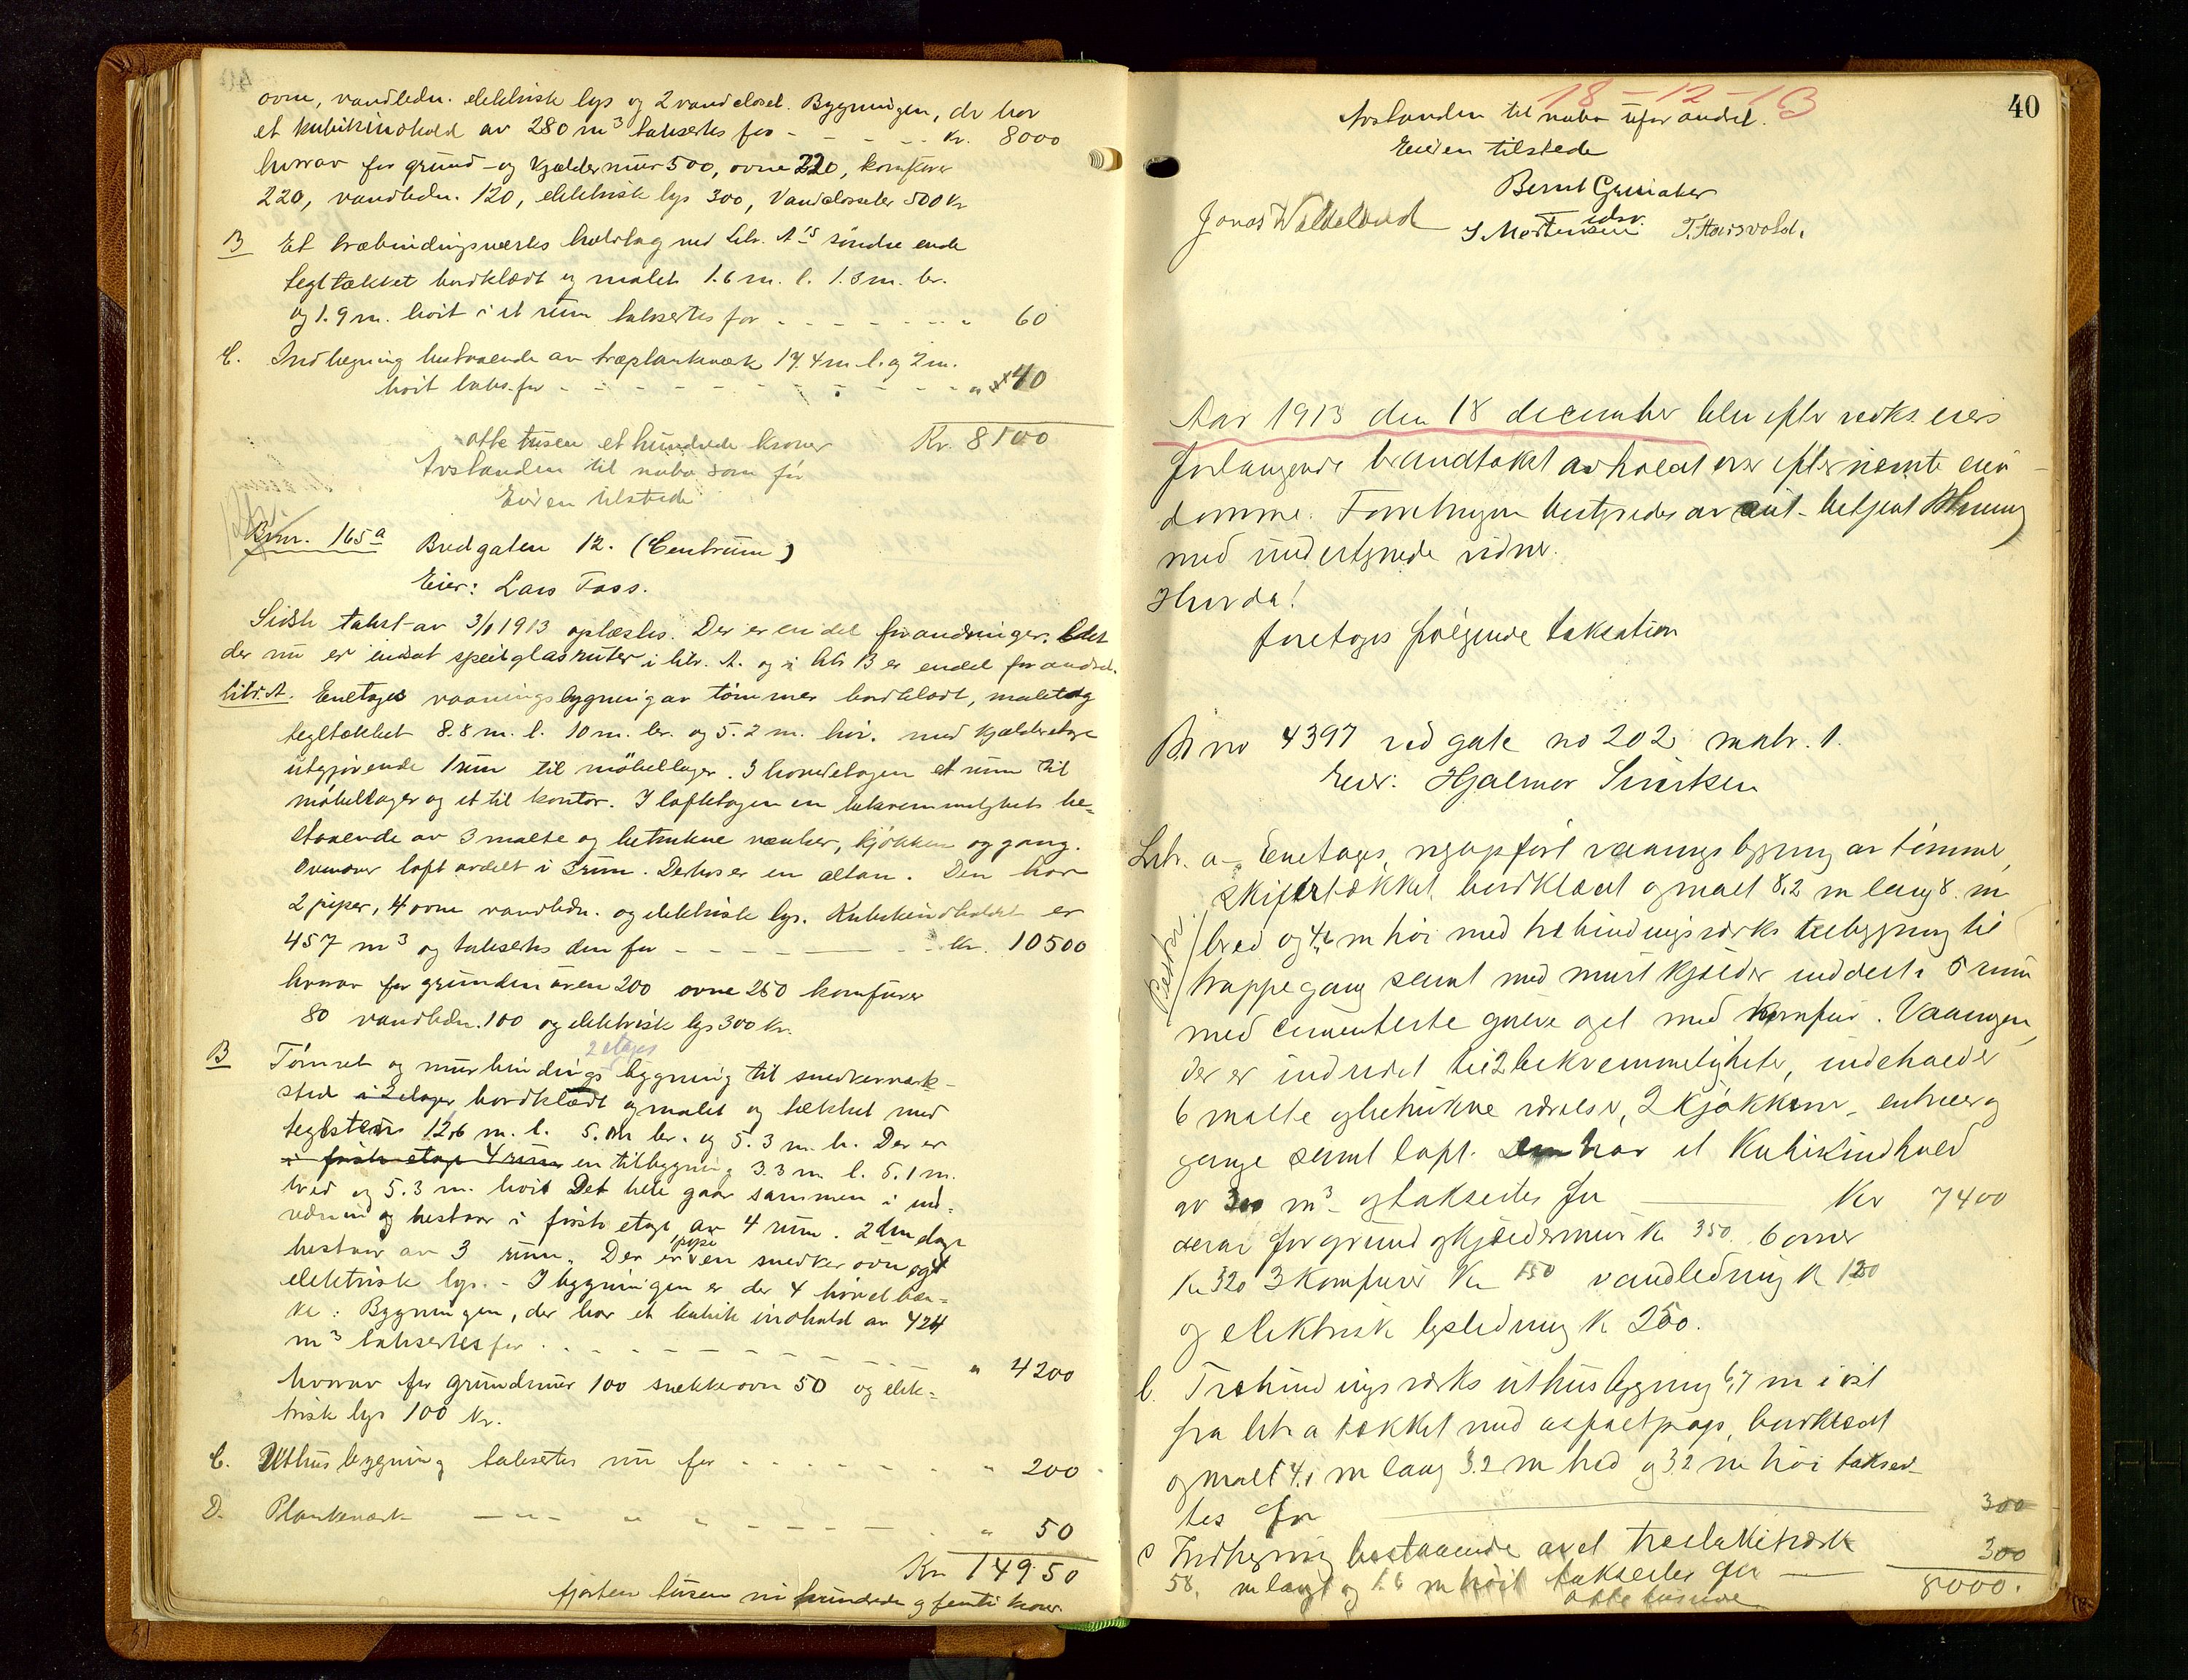 ovne, vandledn. elektrisk lys og 2 vandcloset. Bygningen, der har
et kubikindhold av 280 m³ takseres for - - - - Kr. 8000
hvorav for grund- og kjældermur 500, ovne 220, komfurer
220, vandledn. 120, elektrisk lys 300, Vandclosetter 500 Kr
B Et træbindingsverks halvtag ved Litr. A's søndre ende
tegltækket bordklædt og malet 1.6 m. l. 1.3 m. br.
og 1.9 m. høit i et rum takseres for - - - - - - - " 60
C. Indhegning bestaaende av træplankeværk 17.4 m l. og 2 m.
høit taks. for - - - - - - - - - - " 40
otte tusen et hundrede kroner Kr. 8100
Avstanden til nabo som før
Eieren tilstede
Br.nr. 165a Bredgaten 12. (Centrum)
Eier: Lars Foss.
Sidste takst av 3/1 1913 oplæstes. Der er en del forandringer, idet
der nu er indsat speilglasruter i litr. A. og i litr B er endel forandret.
Litr. A. Enetages vaaningsbygning av tømmer bordklædt, malet og
tegltækket 8.8 m. l. 10 m. br. og 5.2 m. høi. med kjælderetage
utgjørende 1 rum til møbellager. I hovedetagen et rum til
møbellager og et til kontor. I loftetagen en bekvemmelighet be-
staaende av 3 malte og betrukne værelser, kjøkken og gang.
Ovenover loft avdelt i 3 rum. Derhos er en altan. Den har
2 piper, 4 ovne vandledn. og elektrisk lys. Kubikindholdet er
457 m³ og takseres den for - - - - - - - Kr. 10500
hvorav for grundmuren 200 ovne 250 komfurer
80 vandledn. 100 og elektrisk lys 300 Kr.
2 etages
B Tømret og murbindings bygning til snedkerverk-
sted i 2 etager bordklædt og malet og tækket med
teglsten 12,6 m. l. 5. m br. og 5.3 m. h. Der er
i første etage 4 rum en tilbygning 3.3 m. l. 5.1 m.
bred og 5.3 m. høit Det hele gaar sammen i ind-
redning og bestaar i første etage av 4 rum. 2den etage
bestaar av 3 rum. Der er pipe en snedkerovn og
elektrisk lys. - I bygningen er der 4 høvelbæn-
ke: Bygningen, der har et kubik indhold av 424
m³ takseres for - - - - - - - - - " 4200
hvorav for grundmur 100 snekkerovn 50 og elek-
trisk lys 100 Kr.
C. Uthusbygning takseres nu for - - - - - - " 200
D. Plankeverk - " - " " - - - - - " 50
Kr 14950
fjorten tusen ni hundrede og femti kroner.
40
18-12-13
Avstanden til nabo uforandret.
Eieren tilstede
Bernt Gjeriaker
edsv.
Jonas Waldeland S. Mortensen T. Haisvold.
Aar 1913 den 18 december blev efter vedk. eiers
forlangende brandtakst avholdt over efternævnte eien-
domme. Forretningen bestyredes av aut. betjent
med undertegnede vidner.
Hvorda!
foretoges følgende taksation
Br no 4397 ved gate no 202 matr. 1.
Eier: Hjalmar Sivertsen
Litr. a Enetages, nyopført vaaningsbygning av tømmer,
skifertækket, bordklædt og malt 8,2 m lang 8. m
bred og 4,6 m høi med træbindingsverks tilbygning til
trappegang samt med muret kjælder inddelt i 5 rum
med cementerte gulve og et med komfur. Vaaningen,
der er indredet til 2 bekvemmeligheter, indeholder
6 malte og betrukne værelser, 2 kjøkkener, entreer og
gange samt loft. Den har et Kubikindhold
av 300 m³ og takseres for ——— Kr 7400
derav for grund og kjeldermur K 350. 6 ovner
Kr 320 3 Komfurer Kr 150 vandledning K 120
og elektrisk lysledning K 250.
b. Træbindingsverks uthusbygning 6,7 m i øst
fra litr a tækket med asfaltpap, bordklædt
og malt 4,1 m lang 3.2 m bred og 3.2 m høi takser-
tes for ——— 300
c Indhegning bestaaende av et træstakitværk
58. m langt og 1.6 m høit takseres for — 300
otte tusen 8000.